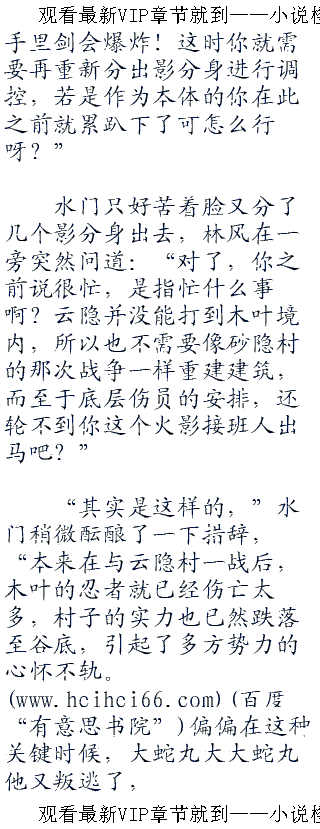 观看最新VIP章节就到——小说检
手里剑会爆炸！这时你就需
要再重新分出影分身进行调
控，若是作为本体的你在此
之前就累趴下了可怎么行
呀？”
水门只好苦着脸又分了
几个影分身出去，林风在一
旁突然问道：“对了，你之
前说很忙，是指忙什么事
啊？云隐并没能打到木叶境
内，所以也不需要像砂隐村
的那次战争一样重建建筑，
而至于底层伤员的安排，还
轮不到你这个火影接班人出
马吧？”
“其实是这样的，”水
门稍微酝酿了一下措辞，
“本来在与云隐村一战后，
木叶的忍者就已经伤亡太
多，村子的实力也已然跌落
至谷底，引起了多方势力的
心怀不轨。
(www.hcihci66.com)(百度
“有意思书院”)偏偏在这种
关键时候，大蛇丸大大蛇丸
他又叛逃了，
观看最新VIP章节就到——小说检